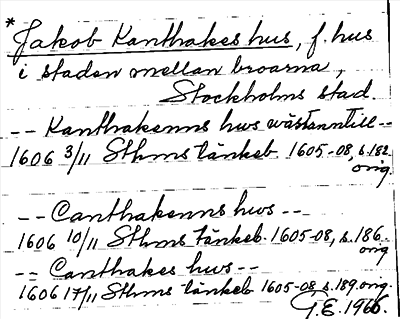 * Jakob Kanthakes hus, f. hus
i staden mellan broarna,
Stockholms stad
-- Kanthakenns hws wästanntill --
1606 3/11 Sthms tänkeb. 1605-08, s. 182
orig.
-- Canthakenns hws --
1606 10/11 Sthms tänkeb. 1605-08, s. 186.
orig
-- Canthakes hws --
1606 17/11 Sthms tänkeb 1605-08 s. 189. orig.
G.E. 1966.